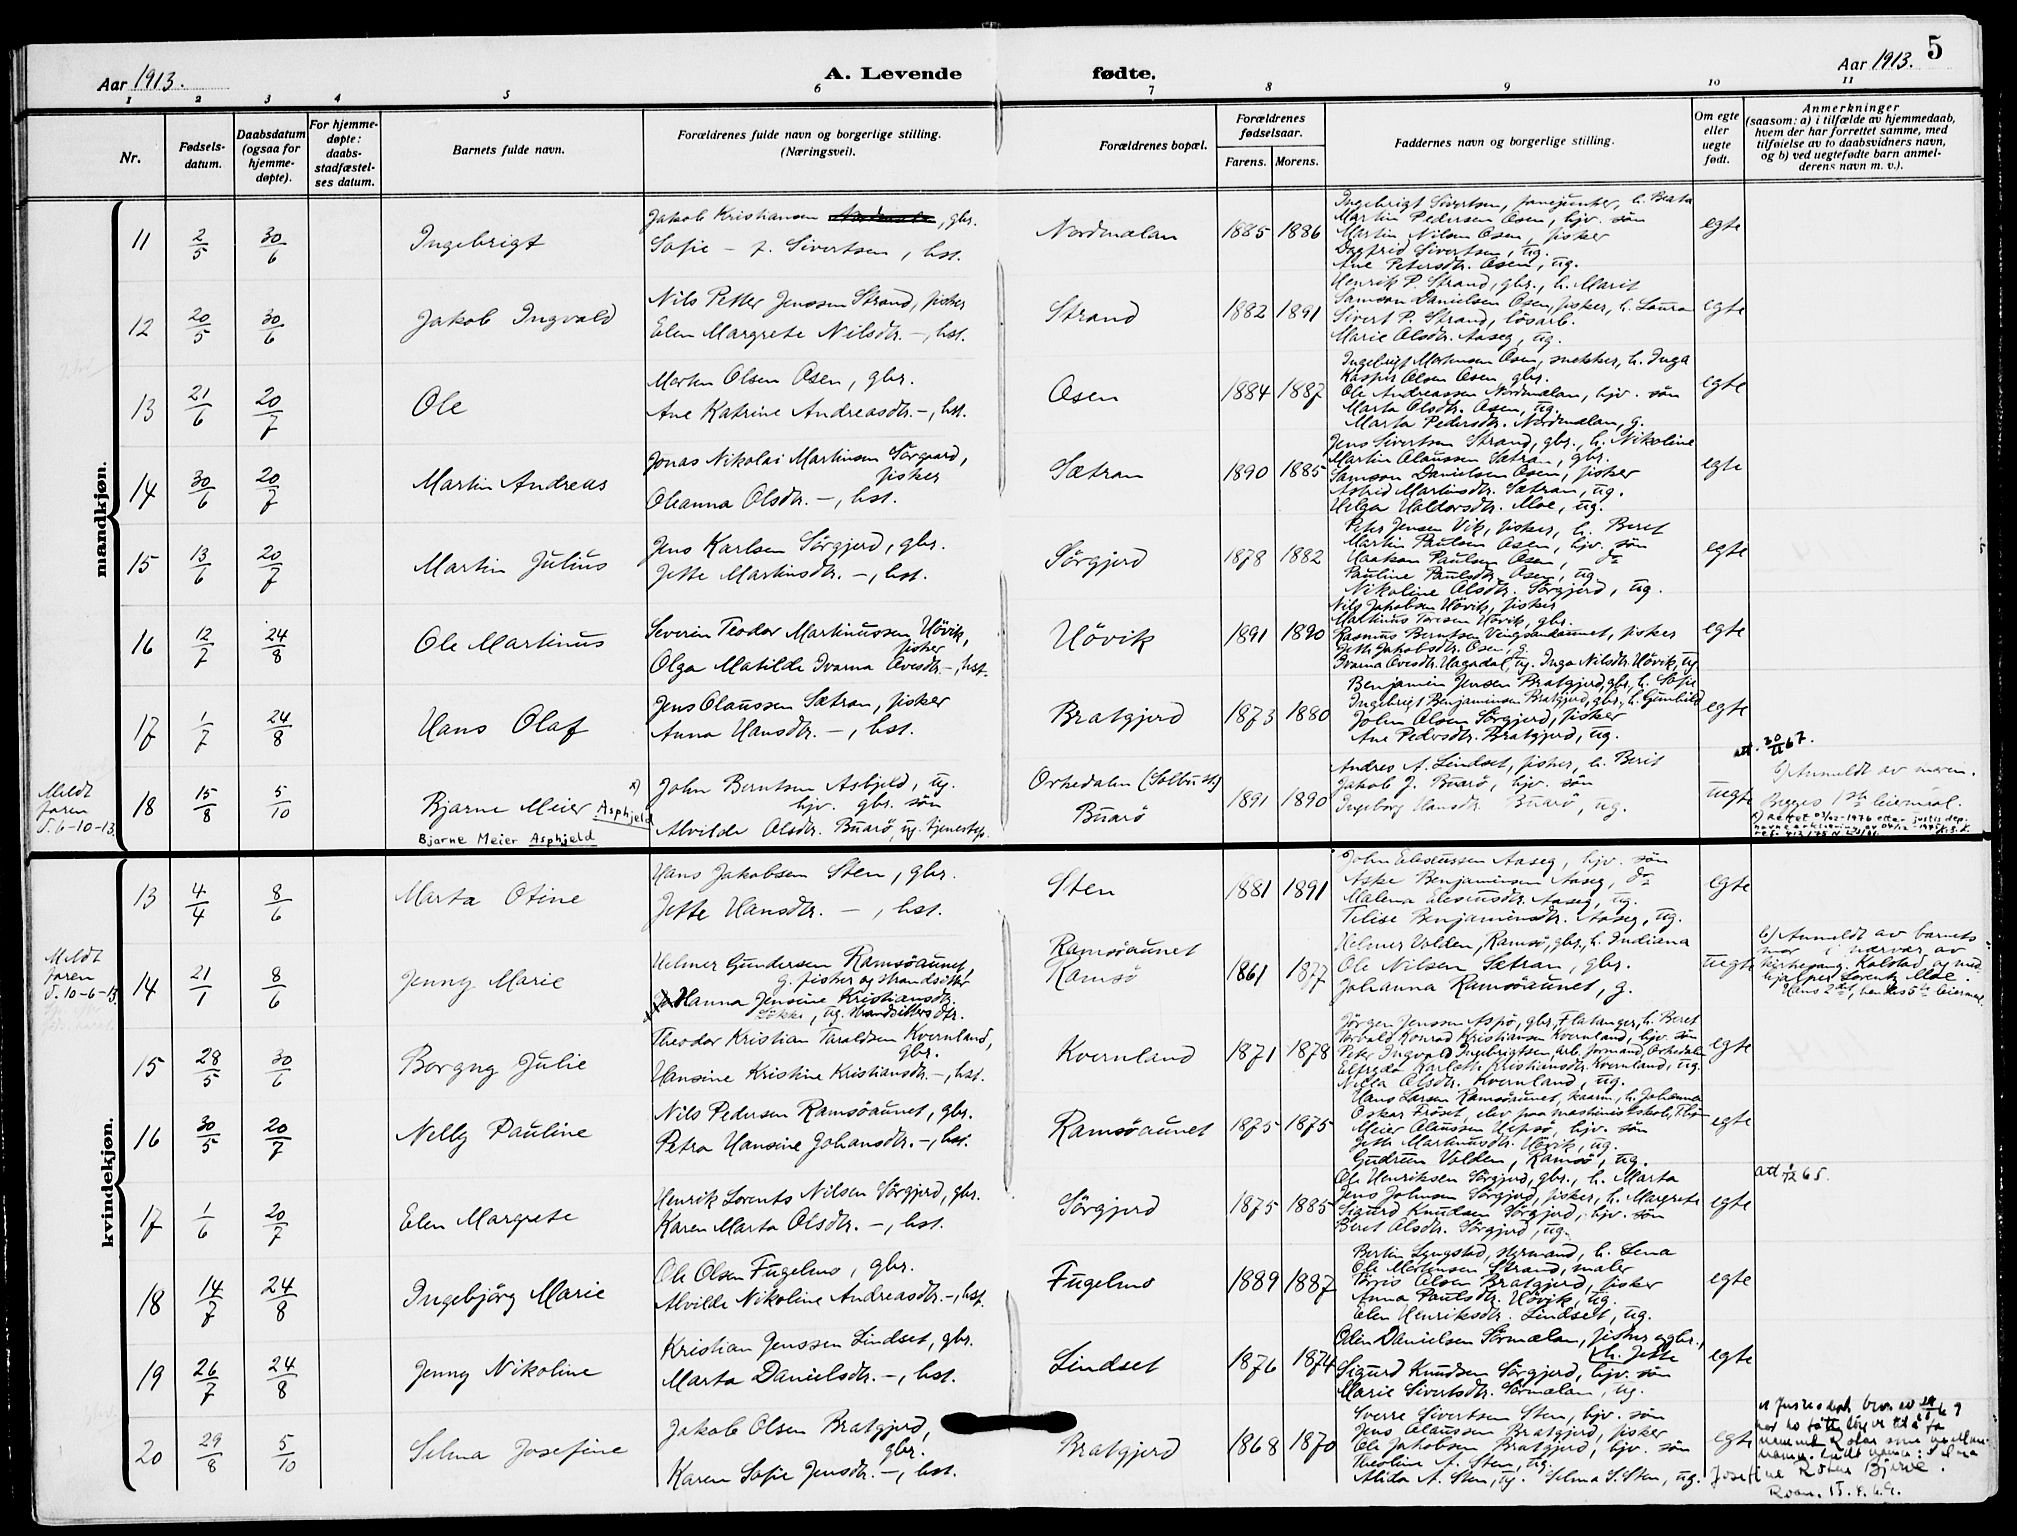 5
Aar 1913.
A. Levende fødte.
Aar 1913.
1 2 3 4 5 6 7 8 9 10 11
Nr.
Fødsels-
datum.
Daabsdatum
(ogsaa for
hjemme-
døpte).
For hjemme-
døpte:
daabs-
stadfæstel-
ses datum.
Barnets fulde navn.
Forældrenes fulde navn og borgerlige stilling.
(Næringsvei).
Forældrenes bopæl.
Forældrenes
fødselsaar.
Farens. Morens.
Faddernes navn og borgerlige stilling.
Om egte
eller
uegte
født.
Anmerkninger
(saasom: a) i tilfælde av hjemmedaab,
hvem der har forrettet samme, med
tilføielse av to daabsvidners navn,
og b) ved uegtefødte barn anmel-
derens navn m. v.).
mandkjøn.
11 2/5 30/6 Ingebrigt
Jakob Kristiansen , gbr.
Sofie – f. Sivertsen, hst.
Nordmelan 1885 1886
Ingebrigt Sivertsen, h. Beata
Martin Pedersen Osen, hjv. søn
Martin Nilsen Osen, fisker
Dagfrid Sivertsen, ug.
Ane Petersdtr. Osen, ug.
egte
12 20/5 30/6 Jakob Ingvald
Nils Petter Jenssen Strand, fisker
Elen Margrete Nilsdtr. –, hst.
Strand 1882 1891
Henrik P. Strand, gbr., h. Marit
Samson Danielsen Osen, fisker, h. Laura
Sivert P. Strand, løsarb.
Marie Olsdtr. Aaseg, ug.
egte
13 21/6 20/7 Ole
Morten Olsen Osen, gbr.
Ane Katrine Andreasdtr. –, hst.
Osen 1884 1887
Ingebrigt Mortensen Osen, snekker, h. Inga
Kasper Olsen Osen, gbr.
Ole Andreassen Nordmelan, hjv. søn
Marta Olsdtr. Osen, ug.
Marta Pedersdtr. Nordmelan, g.
egte
14 30/6 20/7 Martin Andreas
Jonas Nikolai Martinsen Sørgaard,
fisker
Oleanna Olsdtr. –, hst.
Sætran 1890 1885
Jens Sivertsen Strand, gbr., h. Nikoline
Martin Olaussen Sætran, gbr.
Samson Danielsen Osen, fisker
Astrid Martinsdtr. Sætran, ug.
Helga Haldorsdtr. Moe, ug.
egte
15 13/6 20/7 Martin Julius
Jens Karlsen Sørgjerd, gbr.
Jette Martinsdtr. –, hst.
Sørgjerd 1878 1882
Peter Jensen Vik, fisker, h. Beret
Martin Paulsen Osen, hjv. søn
Haakon Paulsen Osen, do
Pauline Paulsdtr. Osen, ug.
Nikoline Olsdtr. Sørgjerd, ug.
egte
16 12/7 24/8 Ole Martinus
Severin Teodor Martinussen Høvik,
fisker
Olga Matilde Ivarna Ovesdtr. –, hst.
Høvik 1891 1890
Nils Jakobsen Høvik, fisker
Martinus Toresen Høvik, gbr.
Rasmus Berntsen Vingsandaunet, fisker
Jette Jakobsdtr. Osen, g.
Ivarna Ovesdtr. Hagadal, ug. Inga Nilsdtr. Høvik, ug.
egte
17 1/7 24/8 Hans Olaf
Jens Olaussen Sætran, fisker
Anna Hansdtr. –, hst.
Bratgjerd 1873 1880
Benjamin Jensen Bratgjerd, gbr., h. Sofie
Ingebrigt Benjaminsen Bratgjerd, gbr., h. Gunhild
John Olsen Sørgjerd, fisker
Ane Pedersdtr. Bratgjerd, ug.
egte
Meldt
faren
d. 6-10-13.
18 15/8 5/10 Bjarne Meier Asphjeld
Bjarne Meier Asphjeld
John Berntsen Asbjeld, ug.
hjv. gbr. søn
Alvilde Olsdtr. Buarø, ug. tjenestep.
Orkedalen
Buarø 1891 1890
Andres A. Lindset, fisker, h. Berit
Jakob J. Buarø, hjv. søn
Ingeborg Hansdtr. Buarø, ug.
uegte
att. 20/11 67.
b) Anmeldt av moren.
Begges 1ste leiermaal.
kvindekjøn.
13 4/4 8/6 Marta Otine
Hans Jakobsen Sten, gbr.
Jette Hansdtr. –, hst.
Sten 1881 1891
John Eliseussen Aaseg, hjv. søn
Aske Benjaminsen Aaseg, do
Malena Eliseusdtr. Aaseg, ug.
Felise Benjaminsdtr. Aaseg, ug.
egte
Meldt
faren
d. 10-6-13.
14 21/1 8/6 Jenny Marie
Helmer Gundersen Ramsøaunet
g. fisker og strandsitter
Hanna Jensine Kristiansdtr.
Søkke, ug. strandsitters dtr.
Ramsøaunet
Ramsø 1861 1877
Helmer Volden, Ramsø, gbr., h. Indiana
Ole Nilsen Sætran, gbr.
Johanna Ramsøaunet, g.
uegte
b) Anmeldt av barnets
mor i nærvær av
Kolstad og med-
hjælper Lorentz Moe.
Hans 2det, hendes 5te leiermaal.
15 28/5 30/6 Borgny Julie
Theodor Kristian Taraldsen Kvernland,
gbr.
Hansine Kristine Kristiansdtr. –, hst.
Kvernland 1871 1878
Jørgen Jenssen Aspø, gbr., Flatanger, h. Beret
Torvald Konrad Kristiansen Kvernland, hjv. søn
Peter Ingvald Ingebrigtsen, arb. formand, Orkedalen
Elfrida Karlotte Kristiansdtr. Kvernland, ug.
Nilla Olsdtr. Kvernland, ug.
egte
16 30/5 20/7 Nelly Pauline
Nils Pedersen Ramsøaunet, gbr.
Petra Hansine Johansdtr. –, hst.
Ramsøaunet 1875 1875
Hans Larsen Ramsøaunet, kaarm., h. Johanna
Oskar Frøset, elev paa maskinistskole, Thjem
Meier Olaussen Hepsø, hjv. søn
Jette Martinusdtr. Høvik, ug.
Gudrun Volden, Ramsø, ug.
egte
17 1/6 20/7 Elen Margrete
Henrik Lorents Nilsen Sørgjerd, gbr.
Karen Marta Olsdtr. –, hst.
Sørgjerd 1875 1885
Ole Henriksen Sørgjerd, gbr., h. Marta
Jens Johnsen Sørgjerd, fisker, h. Margrete
Sigurd Knudsen Sørgjerd, hjv. søn
Beret Olsdtr. Sørgjerd, ug.
egte
18 14/7 24/8 Ingebjørg Marie
Ole Olsen Fugelmo, gbr.
Alvilde Nikoline Andreasdtr. –, hst.
Fugelmo 1889 1887
Bertin Lyngstad, styrmand, h. Lena
Ole Mortensen Strand, maler
Torgis Olsen Bratgjerd, fisker
Anna Paulsdtr. Høvik, ug.
Elen Henriksdtr. Lindset, ug.
egte
19 26/7 24/8 Jenny Nikoline
Kristian Jenssen Lindset, gbr.
Marta Danielsdtr. –, hst.
Lindset 1876 1874
Odin Danielsen Sørmelan, fisker og gbr.,
h. Jette
Sigurd Knudsen Sørgjerd, hjv. søn
Marie Sivertsdtr. Sørmelan, ug.
egte
20 29/8 5/10 Selma Josefine
Jakob Olsen Bratgjerd,
gbr.
Karen Sofie Jensdtr. –, hst.
Bratgjerd 1868 1870
Sverre Sivertsen Sten, hjv. søn
Jens Olaussen Bratgjerd, fisker
Ole Jakobsen Bratgjerd, hjv. søn
Theoline A. Sten, ug.
Alida A. Sten, ug. Selma S. Sten, ug.
egte
Roan. 15.8.69.